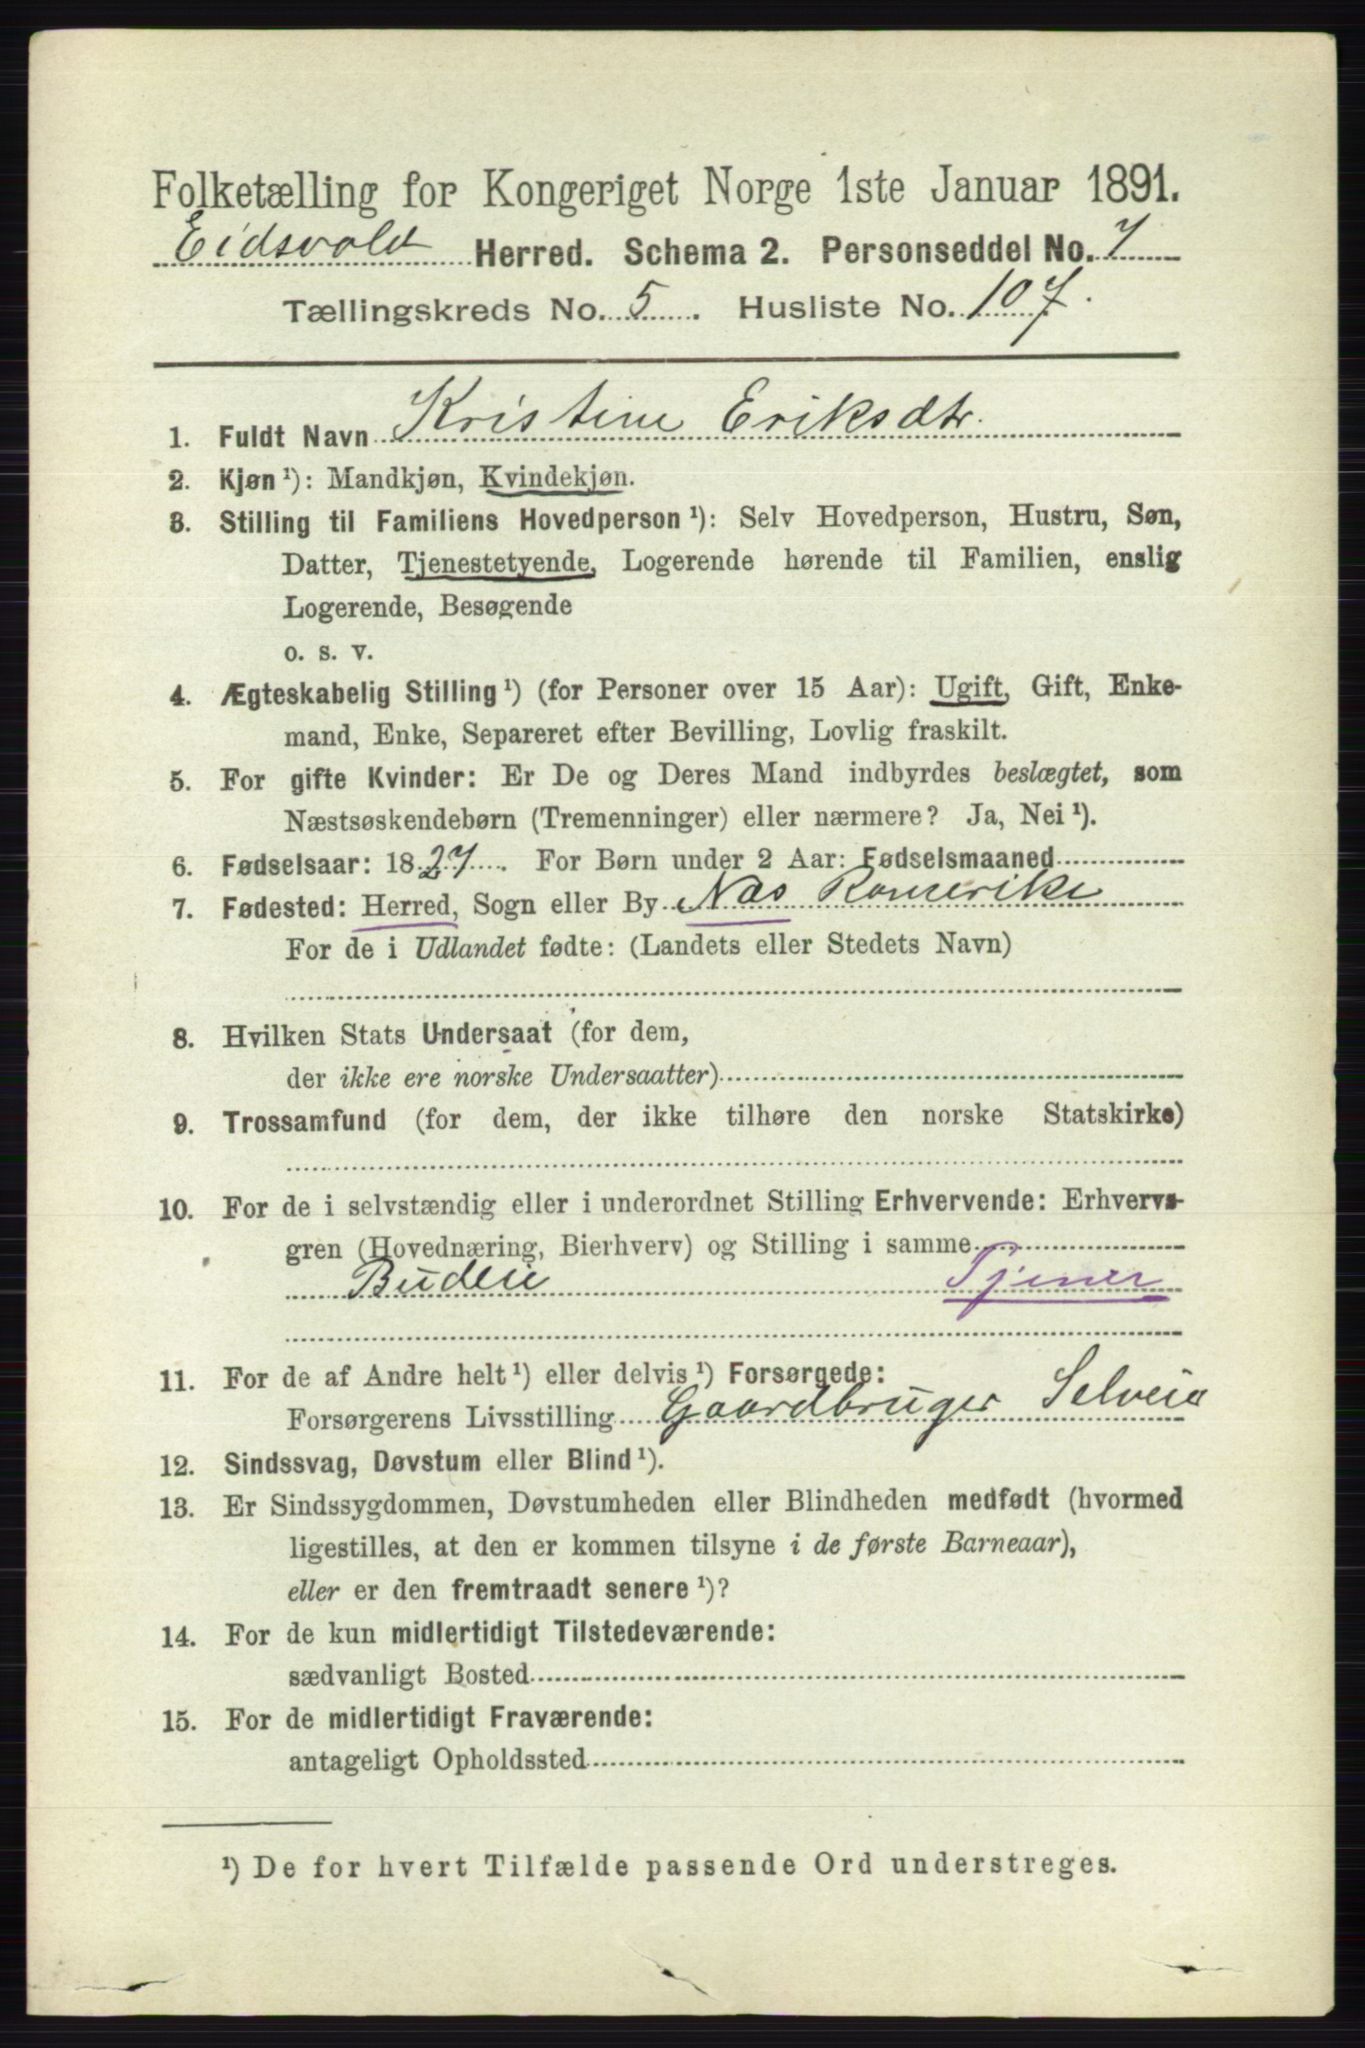 Folketælling for Kongeriget Norge 1ste Januar 1891.
Eidsvold Herred. Schema 2. Personseddel No. 7
Tællingskreds No. 5. Husliste No. 107.
1. Fuldt Navn Kristine Eriksdtr.
2. Kjøn ¹): Mandkjøn, Kvindekjøn.
3. Stilling til Familiens Hovedperson ¹): Selv Hovedperson, Hustru, Søn,
Datter, Tjenestetyende, Logerende hørende til Familien, enslig
Logerende, Besøgende
o. s. v.
4. Ægteskabelig Stilling ¹) (for Personer over 15 Aar): Ugift, Gift, Enke-
mand, Enke, Separeret efter Bevilling, Lovlig fraskilt.
5. For gifte Kvinder: Er De og Deres Mand indbyrdes beslægtet, som
Næstsøskendebørn (Tremenninger) eller nærmere? Ja, Nei ¹).
6. Fødselsaar: 1827. For Børn under 2 Aar: Fødselsmaaned
7. Fødested: Herred, Sogn eller By Næs Romerike
For de i Udlandet fødte: (Landets eller Stedets Navn)
8. Hvilken Stats Undersaat (for dem,
der ikke ere norske Undersaatter)
9. Trossamfund (for dem, der ikke tilhøre den norske Statskirke)
10. For de i selvstændig eller i underordnet Stilling Erhvervende: Erhvervs-
gren (Hovednæring, Bierhverv) og Stilling i samme
Budeie Tjener
11. For de af Andre helt ¹) eller delvis ¹) Forsørgede:
Forsørgerens Livsstilling Gaardbruger Selveier
12. Sindssvag, Døvstum eller Blind ¹).
13. Er Sindssygdommen, Døvstumheden eller Blindheden medfødt (hvormed
ligestilles, at den er kommen tilsyne i de første Barneaar),
eller er den fremtraadt senere ¹)?
14. For de kun midlertidigt Tilstedeværende:
sædvanligt Bosted
15. For de midlertidigt Fraværende:
antageligt Opholdssted
¹) De for hvert Tilfælde passende Ord understreges.